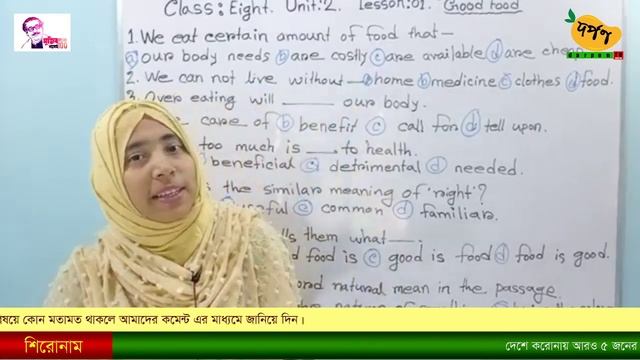 Class: Eight. Unit: 2. lesson: 01. Good food
দর্পণ
1. We eat certain amount of food that—
a our body needs b are costly c are available d are cheap
2. We can not live without — a home b medicine c clothes d food.
3. Over eating will ____ our body.
care of b benefit c call for d tell upon.
too much is ___ to health.
beneficial c detrimental d needed.
the similar meaning of 'right'?
c common d familiar.
them what—;
food is c good is food d food is good.
natural mean in the passage.
বিষয়ে কোন মতামত থাকলে আমাদের কমেন্ট এর মাধ্যমে জানিয়ে দিন।
শিরোনাম
দেশে করোনায় আরও ৫ জনের